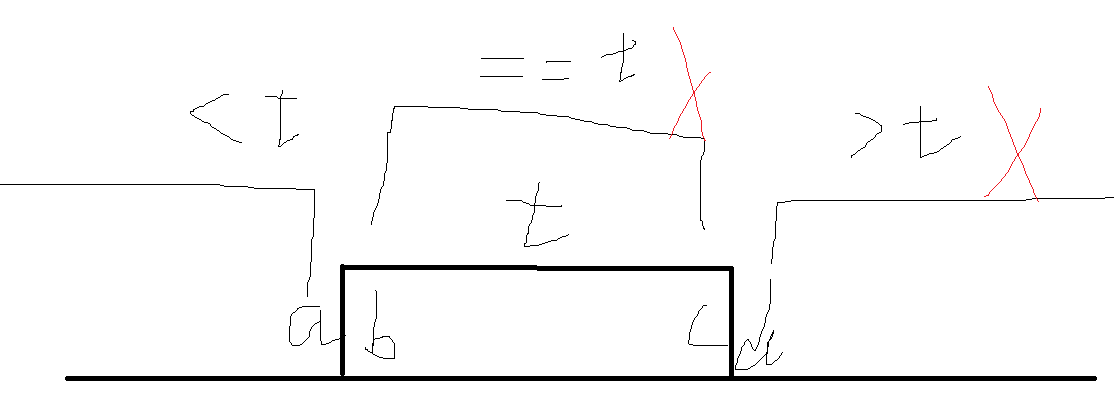 == t X
< t
> t X
t
a b c d